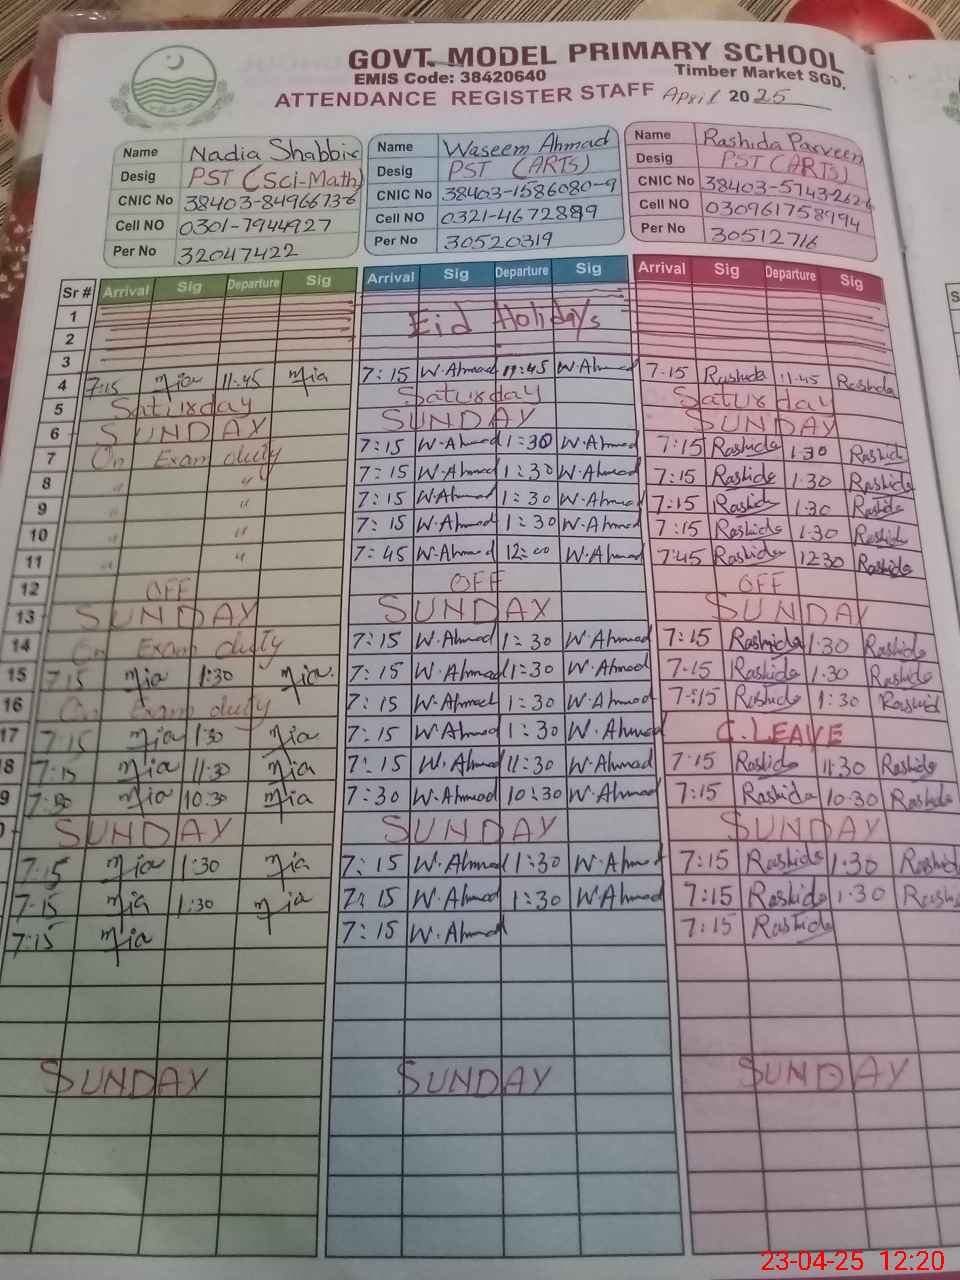 GOVT. MODEL PRIMARY SCHOOL
EMIS Code: 38420640 Timber Market SGD.
ATTENDANCE REGISTER STAFF April 2025
Name Nadia Shabbir Name Waseem Ahmad Name Rashida Parveen
Desig PST (Sci-Math) Desig PST (ARTS) Desig PST (ARTS)
CNIC No 38403-8496673-6 CNIC No 38403-1586080-9 CNIC No 38403-5743262-6
Cell NO 0301-7944927 Cell NO 0321-4672889 Cell NO 030961758994
Per No 32047422 Per No 30520319 Per No 30512716
Sr # Arrival Sig Departure Sig Arrival Sig Departure Sig Arrival Sig Departure Sig
1 Eid Holidays
2
3
4 7:15 11:45 7:15 W.Ahmad 11:45 W.Ahmad 7:15 Rashida 11.45 Rashida
5 Saturday Saturday Saturday
6 SUNDAY SUNDAY SUNDAY
7 On Exam duty 7:15 W.Ahmad 1:30 W.Ahmad 7:15 Rashida 1.30 Rashida
8 " " 7:15 W.Ahmad 1:30 W.Ahmad 7:15 Rashida 1.30 Rashida
9 " " 7:15 W.Ahmad 1:30 W.Ahmad 7:15 Rashida 1.30 Rashida
10 " " 7:15 W.Ahmad 1:30 W.Ahmad 7:15 Rashida 1.30 Rashida
11 " " 7:45 W.Ahmad 12:00 W.Ahmad 7:45 Rashida 12:30 Rashida
12 OFF OFF OFF
13 SUNDAY SUNDAY SUNDAY
14 On Exam duty 7:15 W.Ahmad 1:30 W.Ahmad 7:15 Rashida 1:30 Rashida
15 7:15 1:30 7:15 W.Ahmad 1:30 W.Ahmad 7:15 Rashida 1.30 Rashida
16 On Exam duty 7:15 W.Ahmad 1:30 W.Ahmad 7:15 Rashida 1:30 Rashida
17 7:15 1:30 7:15 W.Ahmad 1:30 W.Ahmad C.LEAVE
18 7:15 11:30 7:15 W.Ahmad 11:30 W.Ahmad 7:15 Rashida 11:30 Rashida
9 7:30 10.30 7:30 W.Ahmad 10:30 W.Ahmad 7:15 Rashida 10.30 Rashida
SUNDAY SUNDAY SUNDAY
7:15 1:30 7:15 W.Ahmad 1:30 W.Ahmad 7:15 Rashida 1.30 Rashida
7:15 1:30 7:15 W.Ahmad 1:30 W.Ahmad 7:15 Rashida 1.30 Rashida
7:15 7:15 W.Ahmad 7:15 Rashida
SUNDAY SUNDAY SUNDAY
23-04-25 12:20